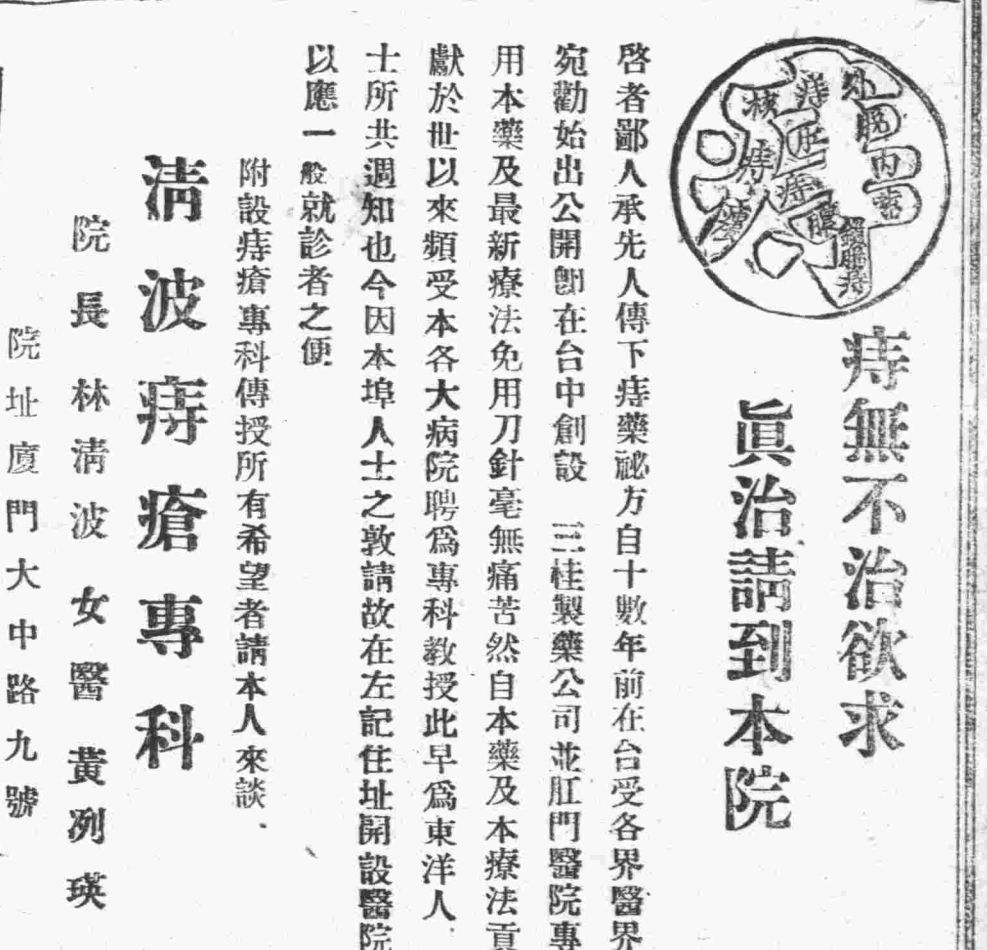 痔無不治欲求
眞治請到本院
啓者鄙人承先人傳下痔藥祕方自十數年前在台受各界醫界
宛勸始出公開卽在台中創設 三桂製藥公司並肛門醫院專
用本藥及最新療法免用刀針毫無痛苦然自本藥及本療法貢
獻於世以來頻受本各大病院聘爲專科教授此早爲東洋人
士所共週知也今因本埠人士之敦請故在左記住址開設醫院
以應一般就診者之便
附設痔瘡專科傳授所有希望者請本人來談.
淸波痔瘡專科
院長 林淸波 女醫 黃冽瑛
院址廈門大中路九號